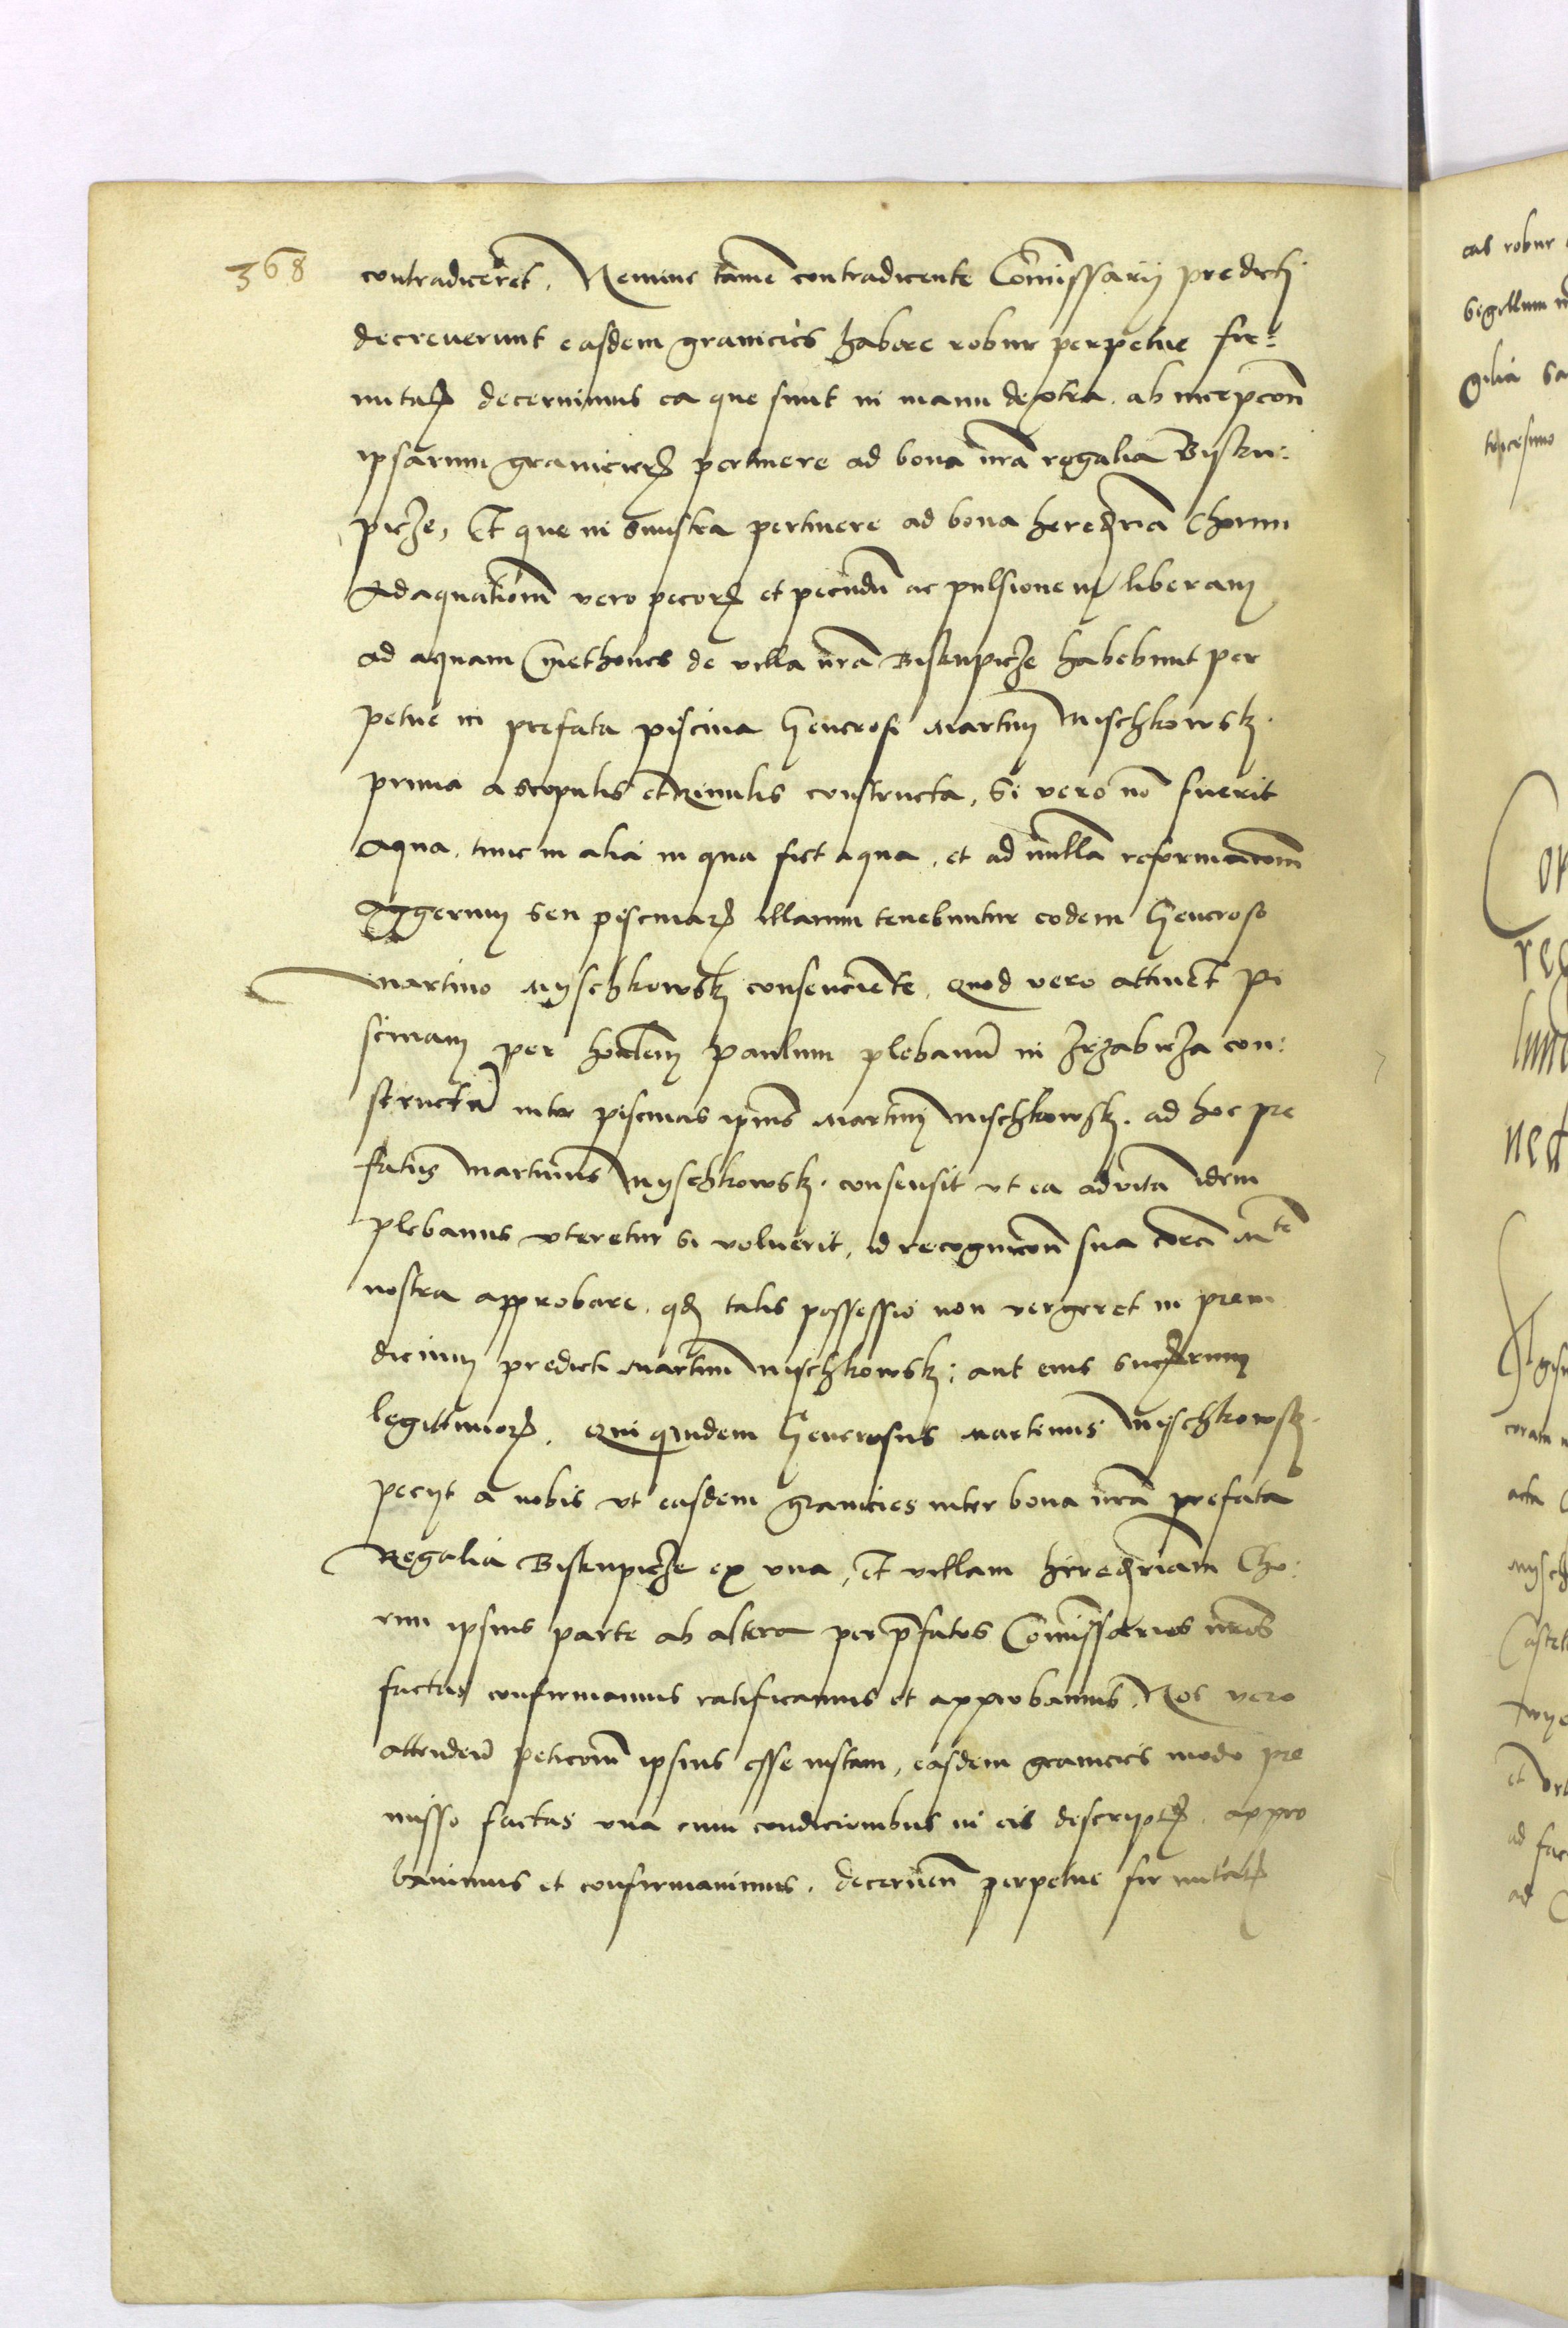 368
contradiceret. Nemine tamē contradicente Com̄issarij predicti
decreuerunt easdem granicies habere robur perpetue fir-
mitatꝫ decernimus ea que sunt in manu dextra ab incepcoñ
ipsarum granicierꝫ pertinere ad bona nrā regalia Bisku-
picze, Et que in sinistra pertinere ad bona heređria Chorun
Adaquationē vero pecorꝫ et pecudū ac pulsionem liberam
ad aquam Cmethones de villa nrā Biskupicze habebunt per
petue in prefata piscina Generosi Martini Mischkowsky.
prima a scopulis et Riuulis constructa, Si vero nō fuerit
aqua, tunc in alia in qua fiet aqua, et ad nullā reformacōnē
Aggerum seu piscinarꝫ illarum tenebuntur eodem Generoso
Martino Mijschkowsky consenciente. Quod vero attinet pi
scinam per honđem Paulum plebanū in Irzabicza con-
structā inter piscinas ipius Martini Mischkowsky. ad hoc pre
fatus Martinus Mijschkowsky. consensit vt ea ad vitā idem
plebanus vteretur si voluerit, id recognicoñ sua corā Mte
nostra approbare, qđ talis possessio non vergeret in preiu
dicium predicti Martini Mijschkowsky: aut eius succrum
legittimorꝫ. Qui quidem Generosus Martinus Mijschkowsky.
pecijt a nobis vt easdem granicies inter bona nrā prefata
Regalia Biskupicze ex vna, Et villam heređriam Cho-
run ipsius parte ab altera per pfatos Com̄issarios nrōs
factas confirmamus ratificamus et approbamus, Nos vero
attendeñ peticoñē ipsius esse iustam, easdem granicies modo pre
misso factas vna cum condicionibus in eis descriptꝫ appro
bauimus et confirmauimus. decerneñ perpetue firmitatꝫ